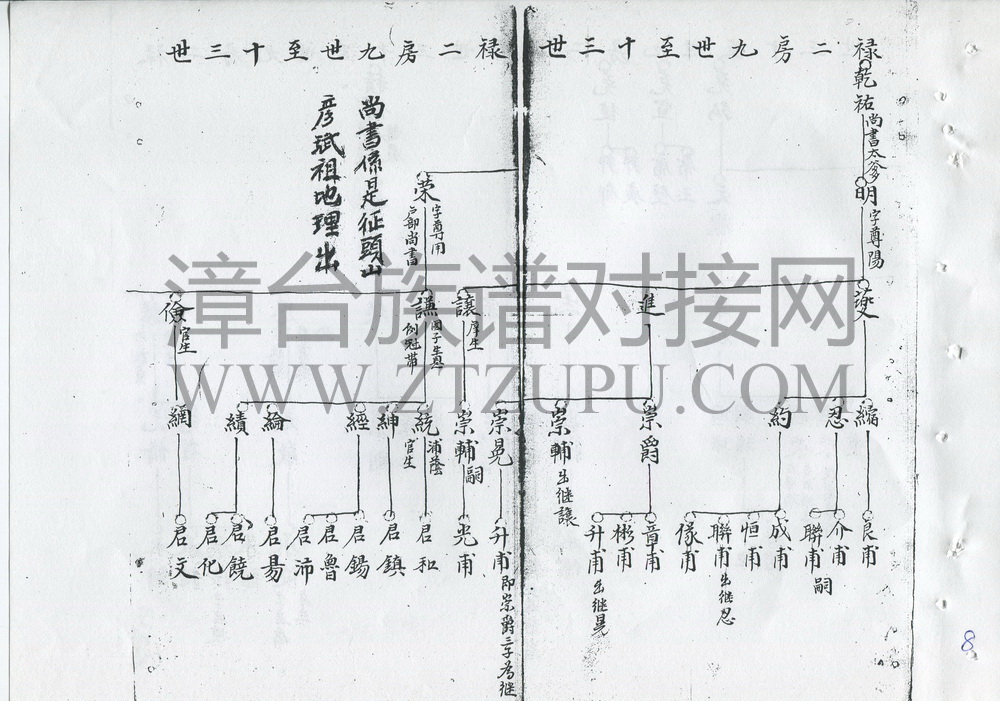 禄二房九世至十三世
乾祐 尚書太爹
明 字尊陽
進
縮
忍
約
崇爵
崇輔 出继讓
崇晃
良甫
介甫
聯甫 嗣
成甫
恒甫
聯甫 出继忍
俅甫
章甫
彬甫
升甫 出继晃
升甫 即崇爵三子為继
禄二房九世至十三世
尚書係是征頭山
彦斌祖地理出
荣 字尊用
户部尚書
讓 庠生
謙 國子生員
例冠带
儉 官生
崇輔 嗣
統 浦蔭
官生
紳
經
綸
績
綱
光甫
君和
君鎮
君錫
君魯
君沛
君易
君饒
君化
君文
漳台族谱对接网
WWW.ZTZUPU.COM
8